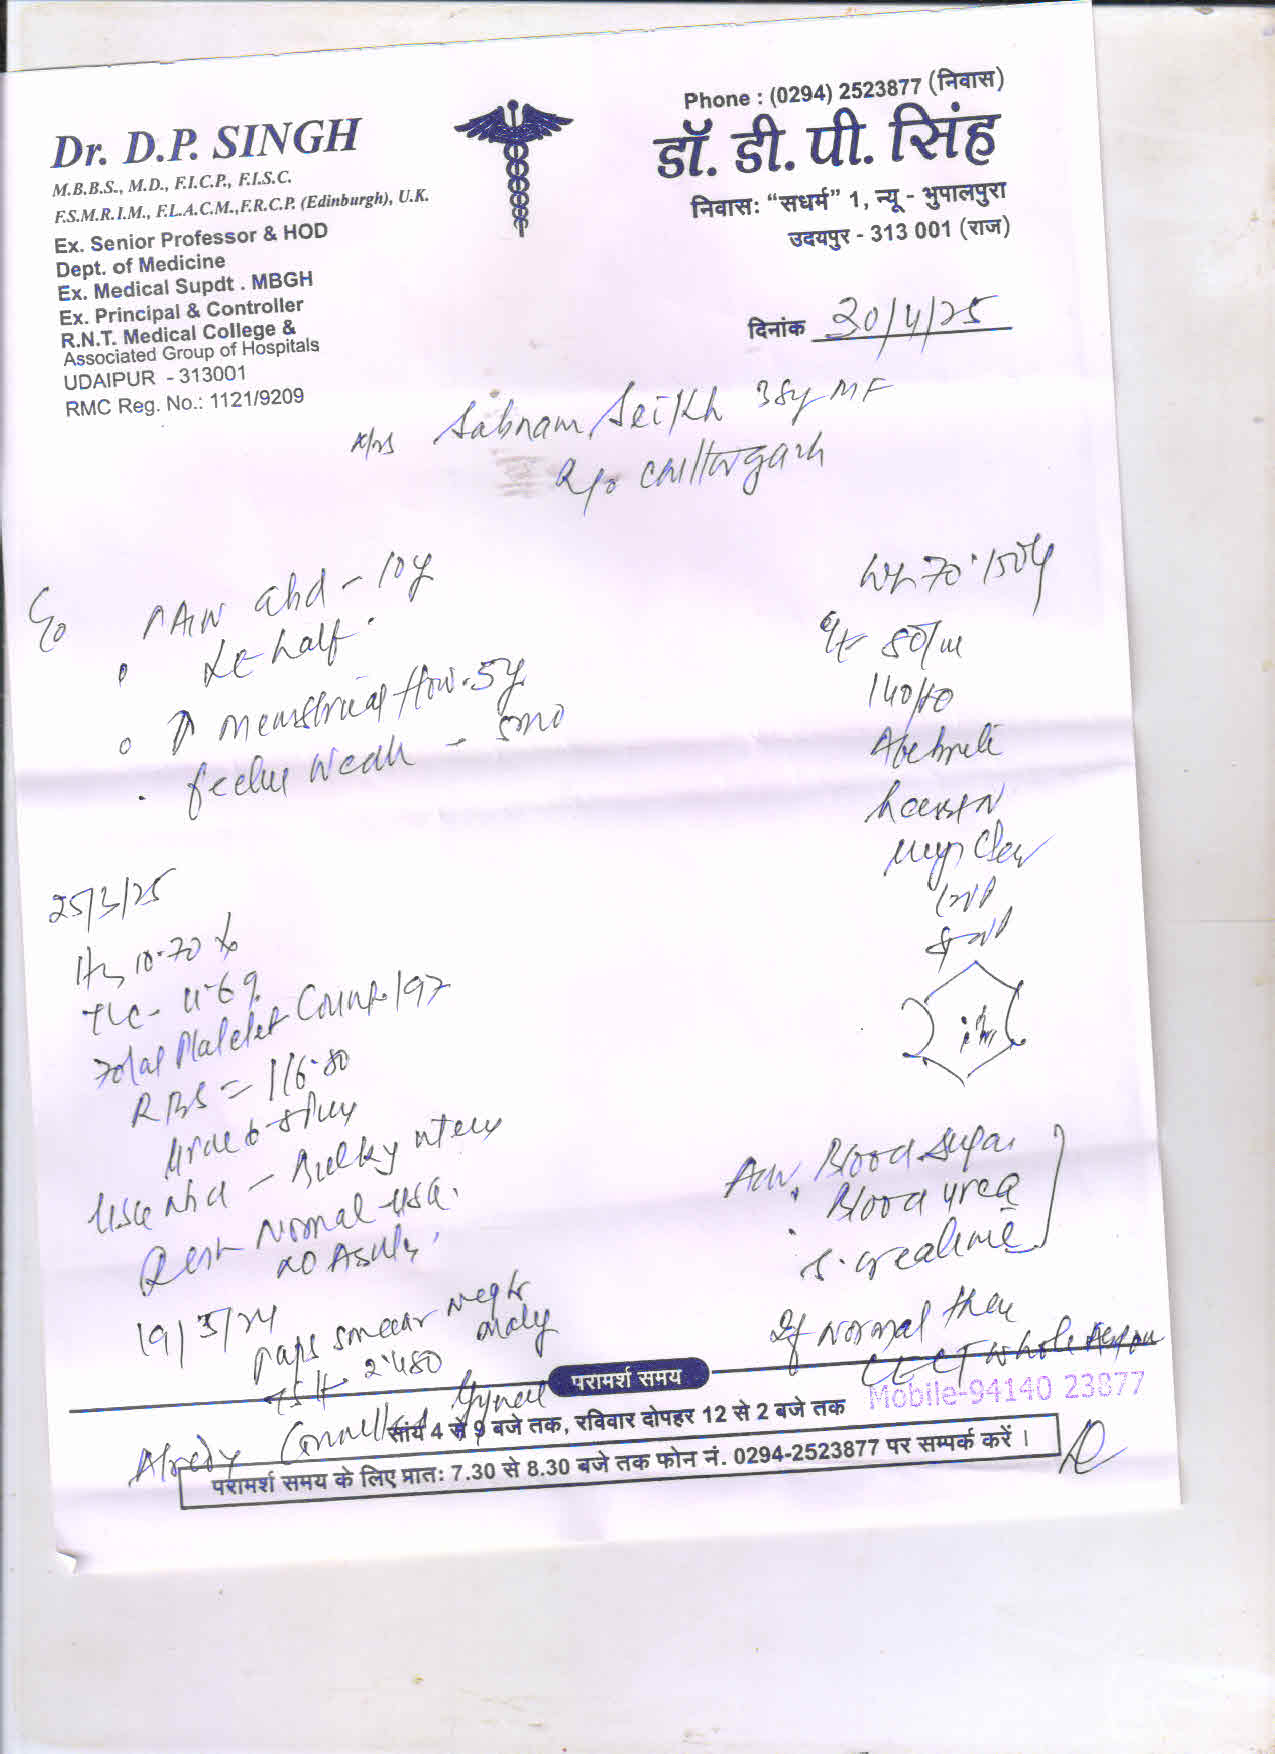 Phone : (0294) 2523877 (निवास)
Dr. D.P. SINGH
M.B.B.S., M.D., F.I.C.P., F.I.S.C.
F.S.M.R.I.M., F.L.A.C.M.,F.R.C.P. (Edinburgh), U.K.
Ex. Senior Professor & HOD
Dept. of Medicine
Ex. Medical Supdt . MBGH
Ex. Principal & Controller
R.N.T. Medical College &
Associated Group of Hospitals
UDAIPUR - 313001
RMC Reg. No.: 1121/9209
डॉ. डी. पी. सिंह
निवास: “सधर्म” 1, न्यू - भुपालपुरा
उदयपुर - 313 001 (राज)
दिनांक 30/4/25
Sabnam Seikh 38y MF
R/o Chittorgarh
C/o
abd - 10y
Lt half
↑ menstrual flow - 5y
feeling weak - 5mo
80/m
140/80
Afebrile
25/3/25
Hb 10.70
TLC - 4.69
Total Platelet Count 197
RBS = 116.80
USG Abd - Bulky uterus
Rest Normal USG.
No Ascites
19/3/24
paps smear
2.480
Already Consulted Gynae
Adv. Blood Sugar
Blood urea
S. creatinine
If Normal then
CECT Whole Abdomen
परामर्श समय
Mobile-94140 23877
सांय 4 से 9 बजे तक, रविवार दोपहर 12 से 2 बजे तक
परामर्श समय के लिए प्रातः 7.30 से 8.30 बजे तक फोन नं. 0294-2523877 पर सम्पर्क करें ।